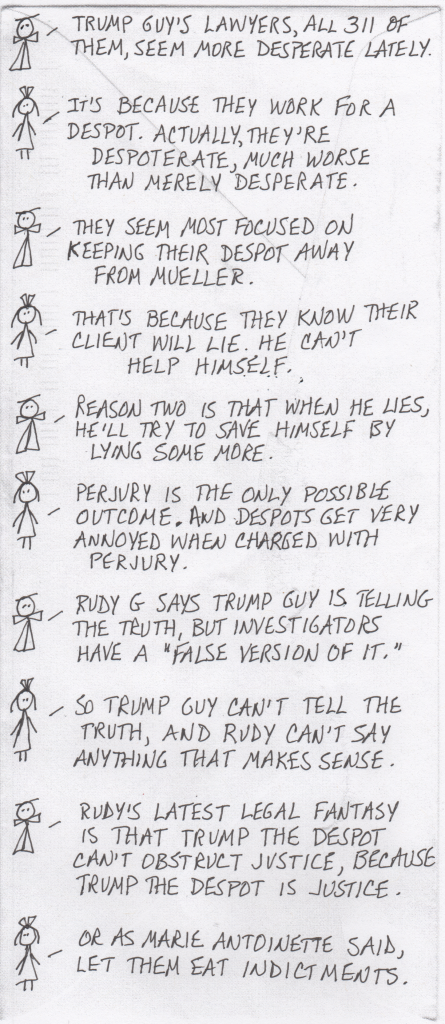 TRUMP GUY'S LAWYERS, ALL 311 OF
THEM, SEEM MORE DESPERATE LATELY.
IT'S BECAUSE THEY WORK FOR A
DESPOT. ACTUALLY, THEY'RE
DESPOTERATE, MUCH WORSE
THAN MERELY DESPERATE.
THEY SEEM MOST FOCUSED ON
KEEPING THEIR DESPOT AWAY
FROM MUELLER.
THAT'S BECAUSE THEY KNOW THEIR
CLIENT WILL LIE. HE CAN'T
HELP HIMSELF.
REASON TWO IS THAT WHEN HE LIES,
HE'LL TRY TO SAVE HIMSELF BY
LYING SOME MORE.
PERJURY IS THE ONLY POSSIBLE
OUTCOME. AND DESPOTS GET VERY
ANNOYED WHEN CHARGED WITH
PERJURY.
RUDY G SAYS TRUMP GUY IS TELLING
THE TRUTH, BUT INVESTIGATORS
HAVE A "FALSE VERSION OF IT."
SO TRUMP GUY CAN'T TELL THE
TRUTH, AND RUDY CAN'T SAY
ANYTHING THAT MAKES SENSE.
RUDY'S LATEST LEGAL FANTASY
IS THAT TRUMP THE DESPOT
CAN'T OBSTRUCT JUSTICE, BECAUSE
TRUMP THE DESPOT IS JUSTICE.
OR AS MARIE ANTOINETTE SAID,
LET THEM EAT INDICTMENTS.